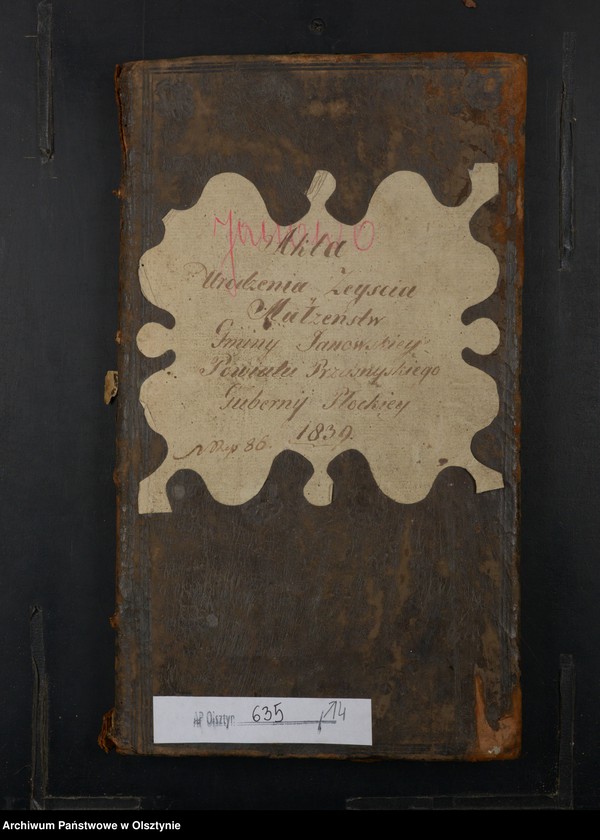 Janowo
Akta
Urodzenia Zeyscia
y
Małżeństw
Gminy Janowskiey
Powiatu Przasnyskiego
Gubernij Płockiey
1839.
86.
AP Olsztyn 635 / 14
Archiwum Państwowe w Olsztynie